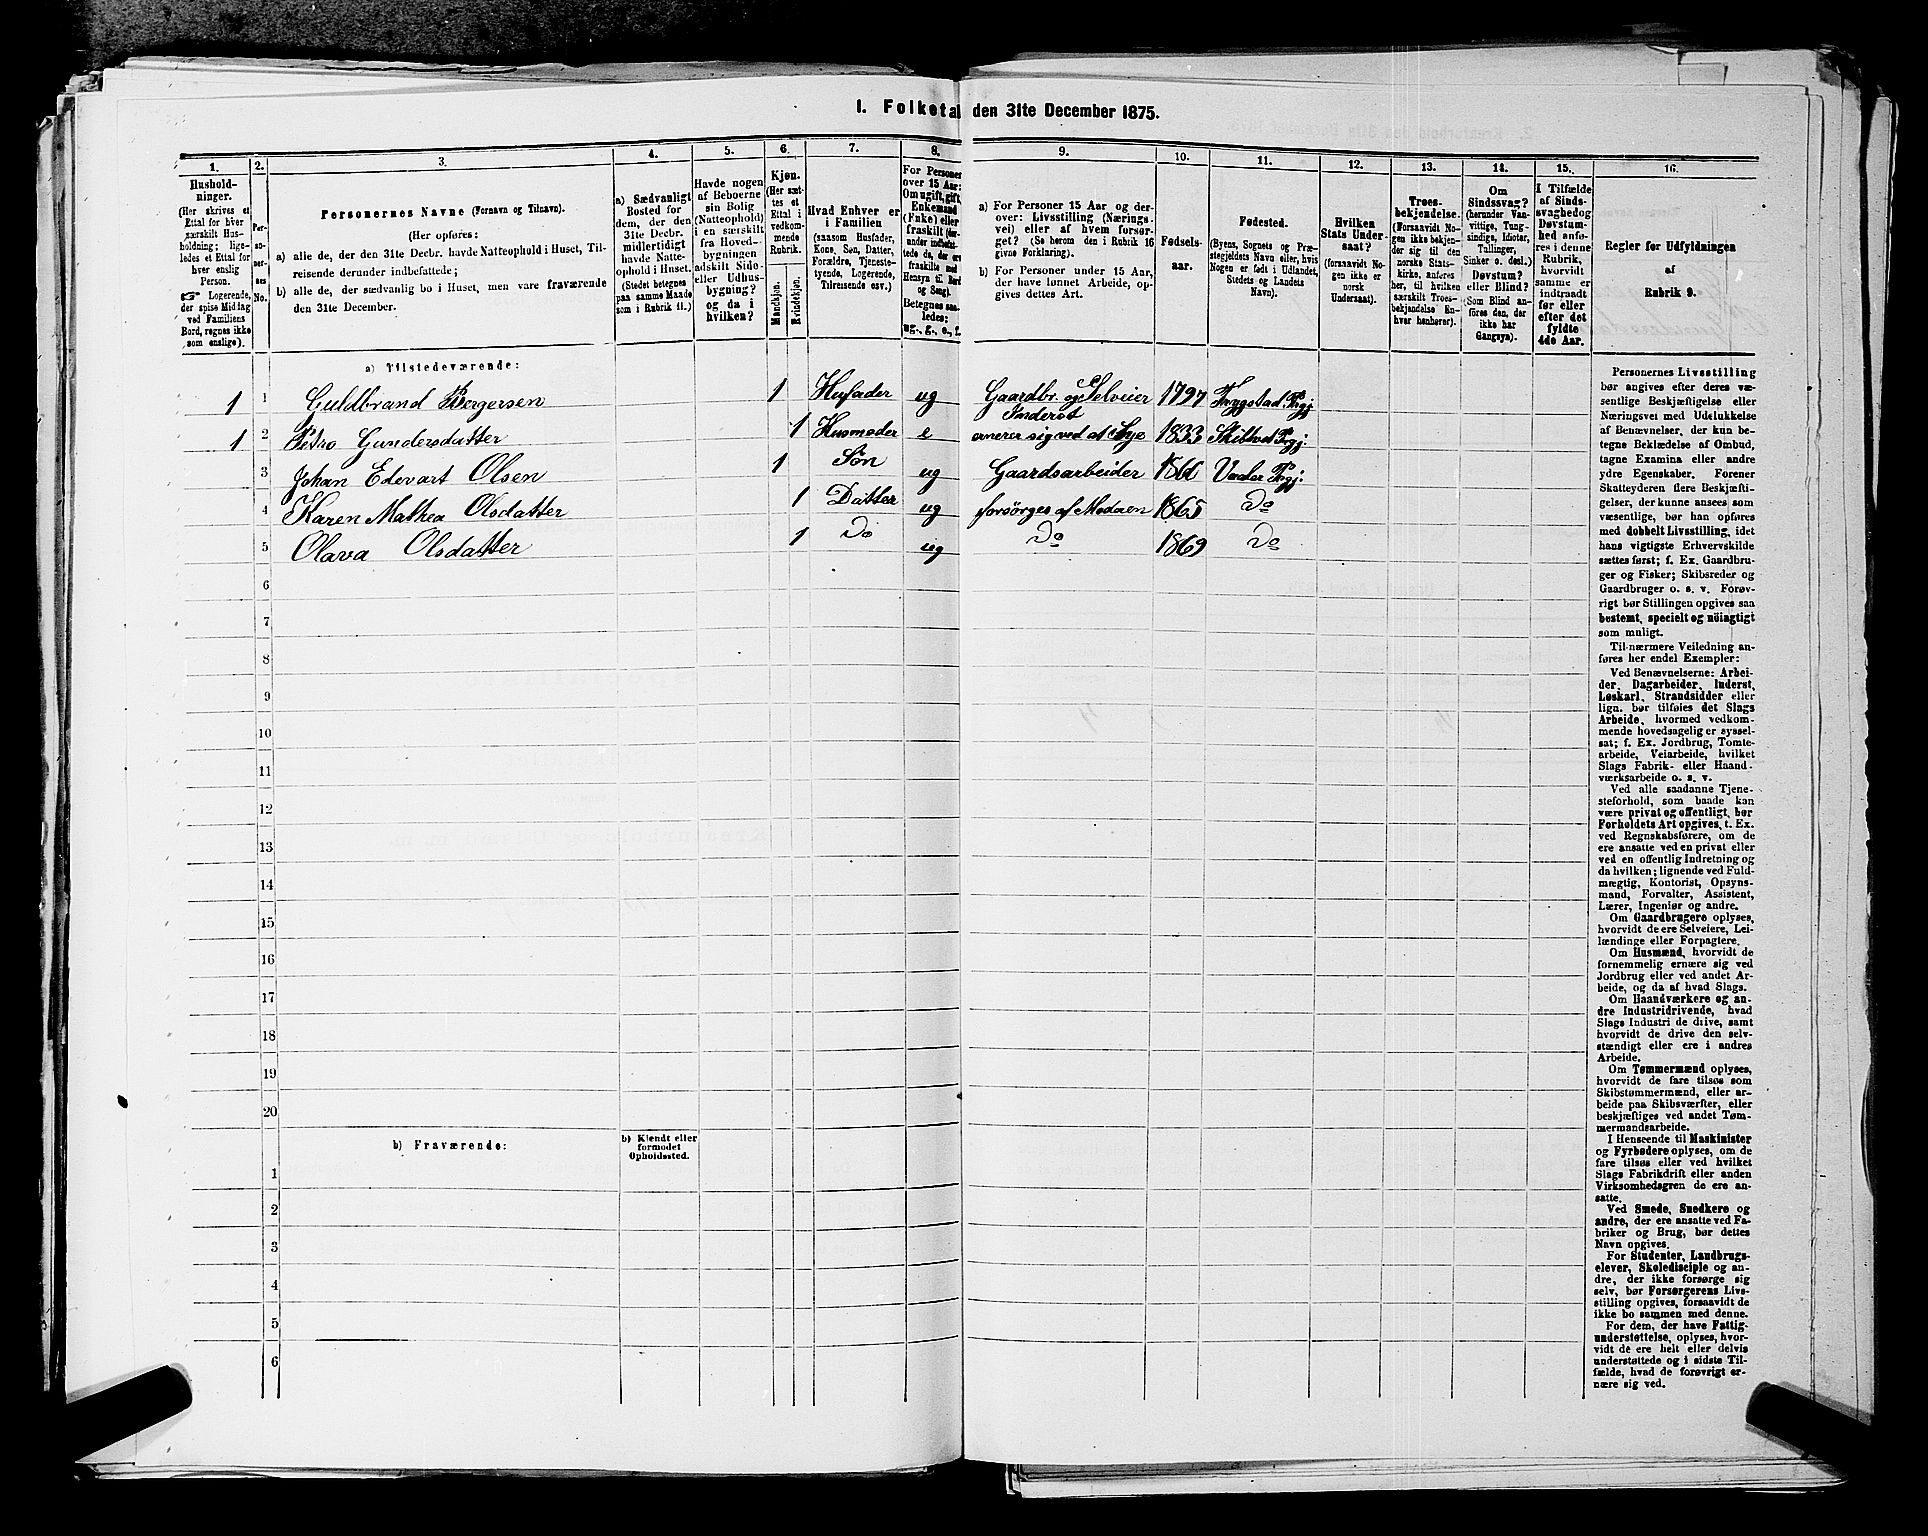 1. Folketal den 31te December 1875.
1. 2. 3. 4. 5. 6. 7. 8. 9. 10. 11. 12. 13. 14. 15. 16.
Hushold-
ninger.
(Her skrives et
Ettal for hver
særskilt Hus-
holdning; lige-
ledes et Ettal for
hver enslig
Person.
☞ Logerende,
der spise Middag
ved Familiens
Bord, regnes ikke
som enslige).
Per-
so-
ner-
nes
No.
Personernes Navne (Fornavn og Tilnavn).
(Her opføres:
a) alle de, der den 31te Decbr. havde Natteophold i Huset, Til-
reisende derunder indbefattede;
b) alle de, der sædvanlig bo i Huset, men vare fraværende
den 31te December.
a) Sædvanligt
Bosted for
dem, der den
31te Decbr.
midlertidigt
havde Natte-
ophold i Huset.
(Stedet betegnes
paa samme Maade
som i Rubrik 11.)
Havde nogen
af Beboerne
sin Bolig
(Natteophold)
i en særskilt
fra Hoved-
bygningen
adskilt Side-
eller Udhus-
bygning?
og da i
hvilken?
Kjøn.
(Her sæt-
tes et
Ettal i
vedkom-
mende
Rubrik.
Mandkjøn.
Kvindekjøn.
Hvad Enhver er
i Familien
(saasom Husfader,
Kone, Søn, Datter,
Forældre, Tjeneste-
tyende, Logerende,
Tilreisende osv.)
For Personer
over 15 Aar:
Om ugift, gift,
Enkemand
(Enke) eller
fraskilt (der-
under indbefat-
tede de, der ere
fraskilte med
Hensyn til Bord
og Seng).
Betegnes saa-
ledes:
ug., g., e., f.
a) For Personer 15 Aar og der-
over: Livsstilling (Nærings-
vei) eller af hvem forsør-
get? (Se herom den i Rubrik 16
givne Forklaring).
b) For Personer under 15 Aar,
der have lønnet Arbeide, op-
gives dettes Art.
Fødsels-
aar.
Fødested.
(Byens, Sognets og Præ-
stegjeldets Navn eller, hvis
Nogen er født i Udlandet,
Stedets og Landets
Navn).
Hvilken
Stats Under-
saat?
(forsaavidt No-
gen ikke er
norsk
Undersaat).
Troes-
bekjendelse.
(Forsaavidt No-
gen ikke bekjen-
der sig til den
norske Stats-
kirke, anføres
her, til hvilken
særskilt Troes-
bekjendelse En-
hver henhører).
Om
Sindssvag?
(herunder Van-
vittige, Tung-
sindige, Idioter,
Tullinger,
Sinker o. desl.)
Døvstum?
eller Blind?
(Som Blind an-
føres den, der
ikke har
Gangsyn).
I Tilfælde
af Sinds-
svaghed og
Døvstum-
hed anfø-
res i denne
Rubrik,
hvorvidt
samme er
indtraadt
før eller
efter det
fyldte
4de Aar.
Regler for Udfyldningen
af
Rubrik 9.
a) Tilstedeværende:
1 1 Guldbrand Bergersen 1 Husfader ug Gaardbr. og Selveier 1797 Trygstad Prgj
Inderst
1 2 Petro Gundersdatter 1 Husmoder e ernerer sig ved at Sye 1833 Skibtvet Prgj:
3 Johan Edevart Olsen 1 Søn ug Gaardsarbeider 1860 Vaaler Prgj:
4 Karen Mathea Olsdatter 1 Datter ug forsørges af Modren 1865 Do
5 Olava Olsdatter 1 Do ug Do 1869 Do
6
7
8
9
10
11
12
13
14
15
16
17
18
19
20
b) Fraværende:
b) Kjendt eller
formodet
Opholdssted.
1
2
3
4
5
6
Personernes Livsstilling
bør angives efter deres væ-
sentlige Beskjæftigelse eller
Næringsvei med Udelukkelse
af Benævnelser, der kun be-
tegne Beklædelse af Ombud,
tagne Examina eller andre
ydre Egenskaber. Forener
Skatteyderen flere Beskjæfti-
gelser, der kunne ansees som
væsentlige, bør han opføres
med dobbelt Livsstilling, idet
hans vigtigste Erhvervskilde
sættes først; f. Ex. Gaardbru-
ger og Fisker; Skibsreder og
Gaardbruger o. s. v. Forøv-
rigt bør Stillingen opgives saa
bestemt, specielt og nöiagtigt
som muligt.
Til nærmere Veiledning an-
føres her endel Exempler:
Ved Benævnelserne: Arbei-
der, Dagarbeider, Inderst,
Løskarl, Strandsidder eller
lign. bør tilføies det Slags
Arbeide, hvormed vedkom-
mende hovedsagelig er syssel-
sat; f. Ex. Jordbrug, Tomte-
arbeide, Veiarbeide, hvilket
Slags Fabrik- eller Haand-
værksarbeide o. s. v.
Ved alle saadanne Tjene-
steforhold, som baade kan
være privat og offentligt, bør
Forholdets Art opgives, t. Ex.
ved Regnskabsførere, om de
ere ansatte ved en privat eller
ved en offentlig Indretning og
da hvilken; lignende ved Fuld-
mægtig, Kontorist, Opsyns-
mand, Forvalter, Assistent,
Lærer, Ingeniør og andre.
Om Gaardbrugere oplyses,
hvorvidt de ere Selveiere, Lei-
lændinge eller Forpagtere.
Om Husmænd, hvorvidt de
fornemmelig ernære sig ved
Jordbrug eller ved andet Ar-
beide, og da af hvad Slags.
Om Haandværkere og an-
dre Industridrivende, hvad
Slags Industri de drive, samt
hvorvidt de drive den selv-
stændigt eller ere i andres
Arbeide.
Om Tømmermænd oplyses,
hvorvidt de fare tilsøs som
Skibstømmermænd, eller ar-
beide paa Skibsværfter, eller
beskjæftiges ved andet Tøm-
mermandsarbeide.
I Henseende til Maskinister
og Fyrbødere oplyses, om de
fare tilsøs eller ved hvilket
Slags Fabrikdrift eller anden
Virksomhedsgren de ere an-
satte.
Ved Smede, Snedkere og
andre, der ere ansatte ved Fa-
briker og Brug, bør dettes
Navn opgives.
For Studenter, Landbrugs-
elever, Skoledisciple og an-
dre, der ikke forsørge sig
selv, bør Forsørgerens Livs-
stilling opgives, forsaavidt de
ikke bo sammen med denne.
For dem, der have Fattig-
understøttelse, oplyses, hvor-
vidt de ere helt eller delvis
understøttede og i sidste Til-
fælde, hvad de forøvrigt er-
nære sig ved.